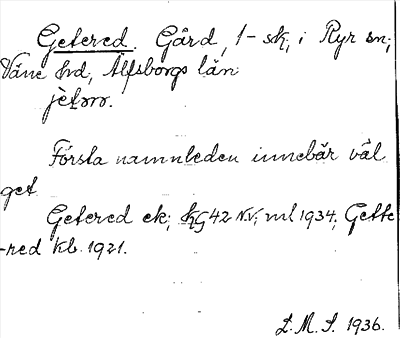 Getered. Gård, 1-sk, i Ryr sn;
Väne hd, Älfsborgs län
jètərr.
Första namnleden innebär väl
get
Getered ek; KG 42 N.V; ml 1934, Gette
-red kb. 1921.
L.M.S. 1936.